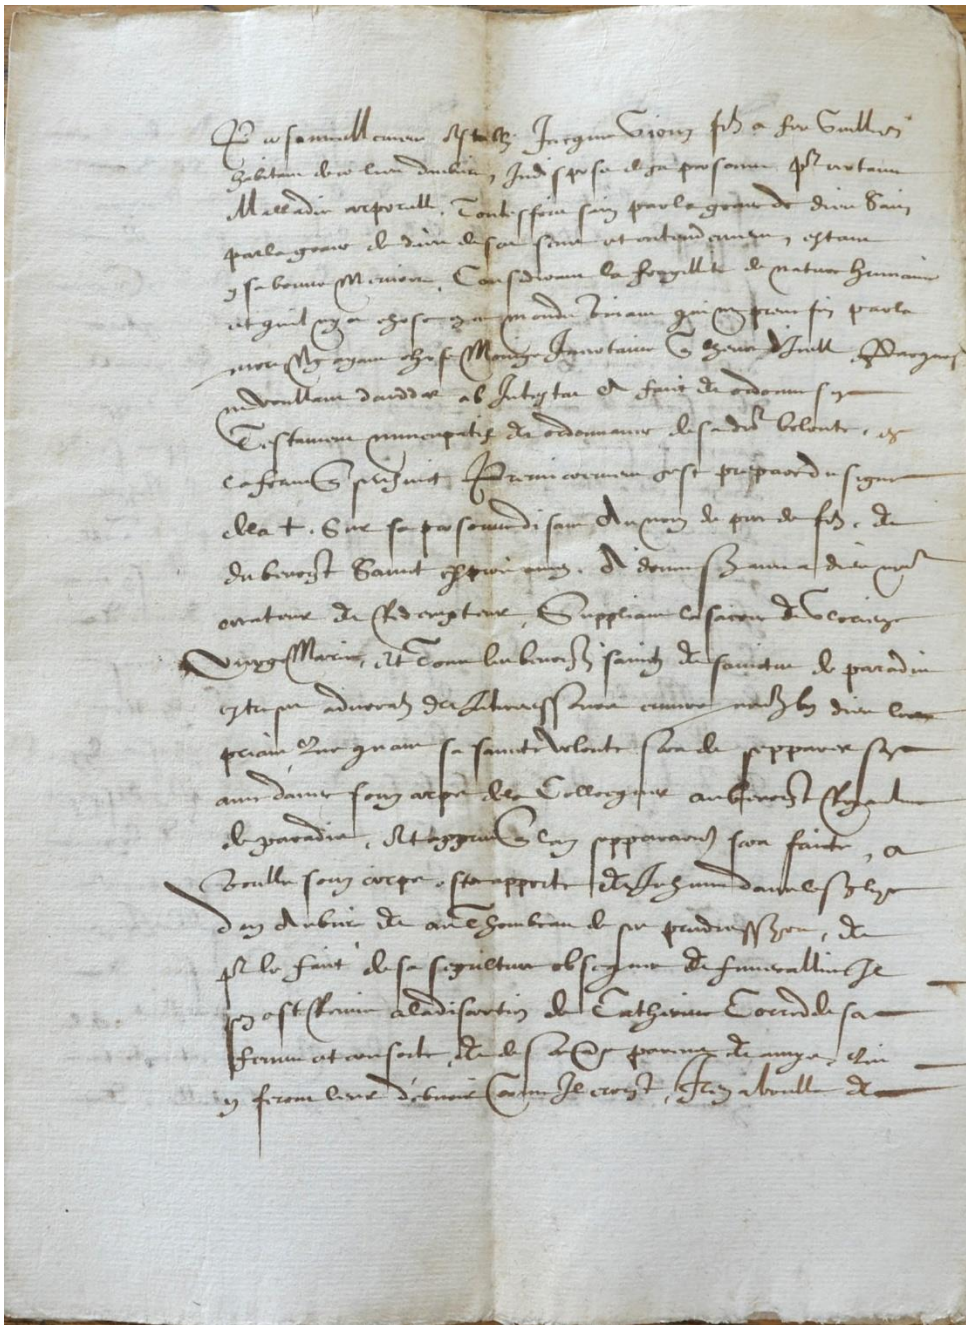 Personnellement estably Jacques Vion filz a feu Guillem
habitant de ce lieu danbün, Indispose de sa personne pr certaine
Malladie corporelle, Toutesfois sain par la grace de dieu Sain
par la grace de dieu de son sens et entendement, estant
en sa bonne Memoire, Considerant la fragillite de nature humaine
et quil ny a chose en ce monde vivant qui ne prene fin par la
mort Ny ayant chose Moingz Incertaine que lheure dIcelle
ne voullant decedder ab Intestat A faict et ordonne son
Testament nuncupatif et ordonnance de sa dre volente, en
la forme que sensuit, Premierement sest prepare du signe
de la +. Sur sa personne disant Au nom de pere de filz, et
du benoist Sainct esperit amen. A donne son ame a dieu nre
createur et Redempteur, Suppliant la sacree et glorieuse
Vierge Marie, Et Tous les benoistz sainctz et sainctes de paradis
estre ses advocatz et Intercesseurs envers dieu le
priant, Que quant sa saincte volente sera de sepparer son
ame davec son corps de la Collocquer au benoist Royaulme
de paradis, Et appres que la sepparation sera faicte, a
voullu son corps estre apporte et Inhume dans lesglize
et au Thombeau de ses predecesseurs, et
pr le faict de sa sepulture obseques et funerailles Il
sen est Remis a la discretion de Catherine de sa
femme et consorte, et de ses parens et amys, qui
en feront leur debvoir comme Il croyt, Item a voullu et